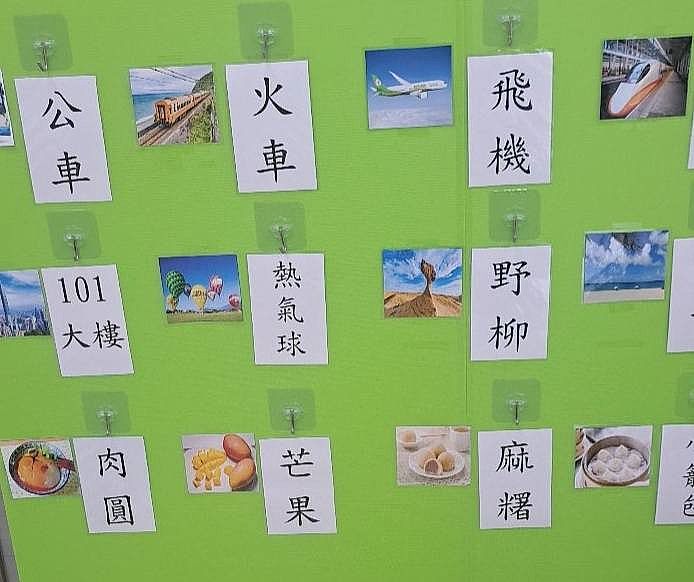 公車
火車
飛機
101
大樓
熱氣球
野柳
肉圓
芒果
麻糬
小籠包